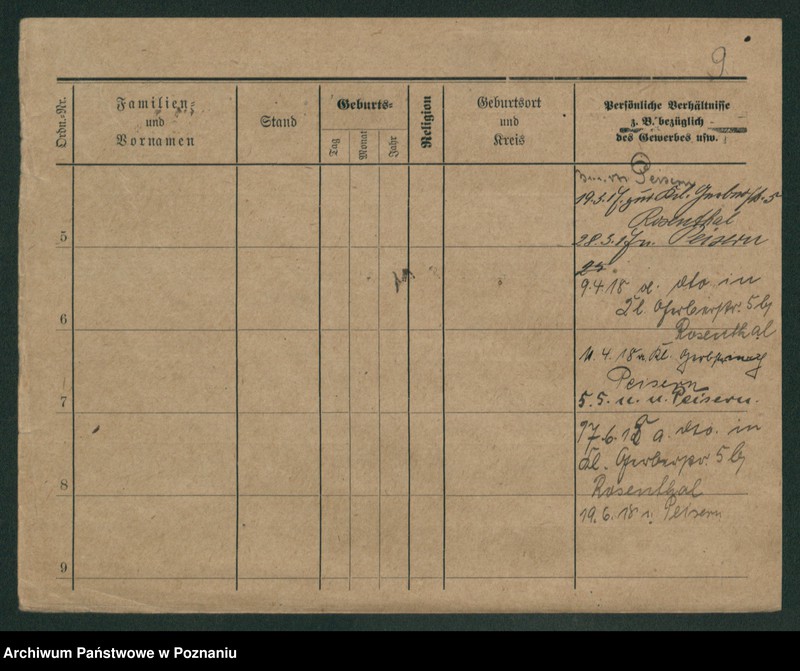 9
Ordn.-Nr.
Familien-
und
Vornamen
Stand
Geburts-
Tag
Monat
Jahr
Religion
Geburtsort
und
Kreis
Persönliche Verhältnisse
z. B. bezüglich
des Gewerbes usw.
Peisern
19.3.17. zur Kl. Gerberstr. 5
Rosenthal
5
28.3.17 n. Peisern
25
9.4.18 dto in
6
Kl. Gerberstr. 5 b/
Rosenthal
11.4.18 n. Kl.
Peisern
7
5.5. n. Peisern.
17.6.18 a. dto. in
Kl. Gerberstr. 5 b/
8
Rosenthal
19.6.18 n. Peisern
9
Archiwum Państwowe w Poznaniu